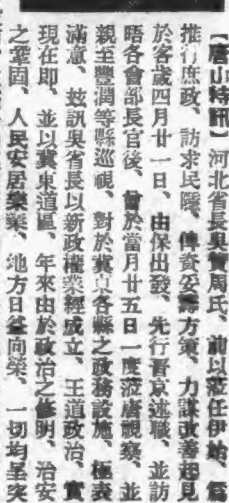 【唐山特訊】河北省長吳贊周氏、前以蒞任伊始、爲
推行庶政、訪求民隱、俾資妥籌方策、力謀改善起見
於客歲四月廿一日、由保出發、先行晋京述職、並訪
晤各會部長官後、曾於當月廿五日一度蒞唐視察、並
親至豐潤等縣巡視、對於冀東各縣之政務設施、極表
滿意、茲訊吳省長以新政權業經成立、王道政治、實
現在即、並以冀東道區、年來由於政治之修明、治安
之鞏固、人民安居樂業、地方日益向榮、一切均呈突